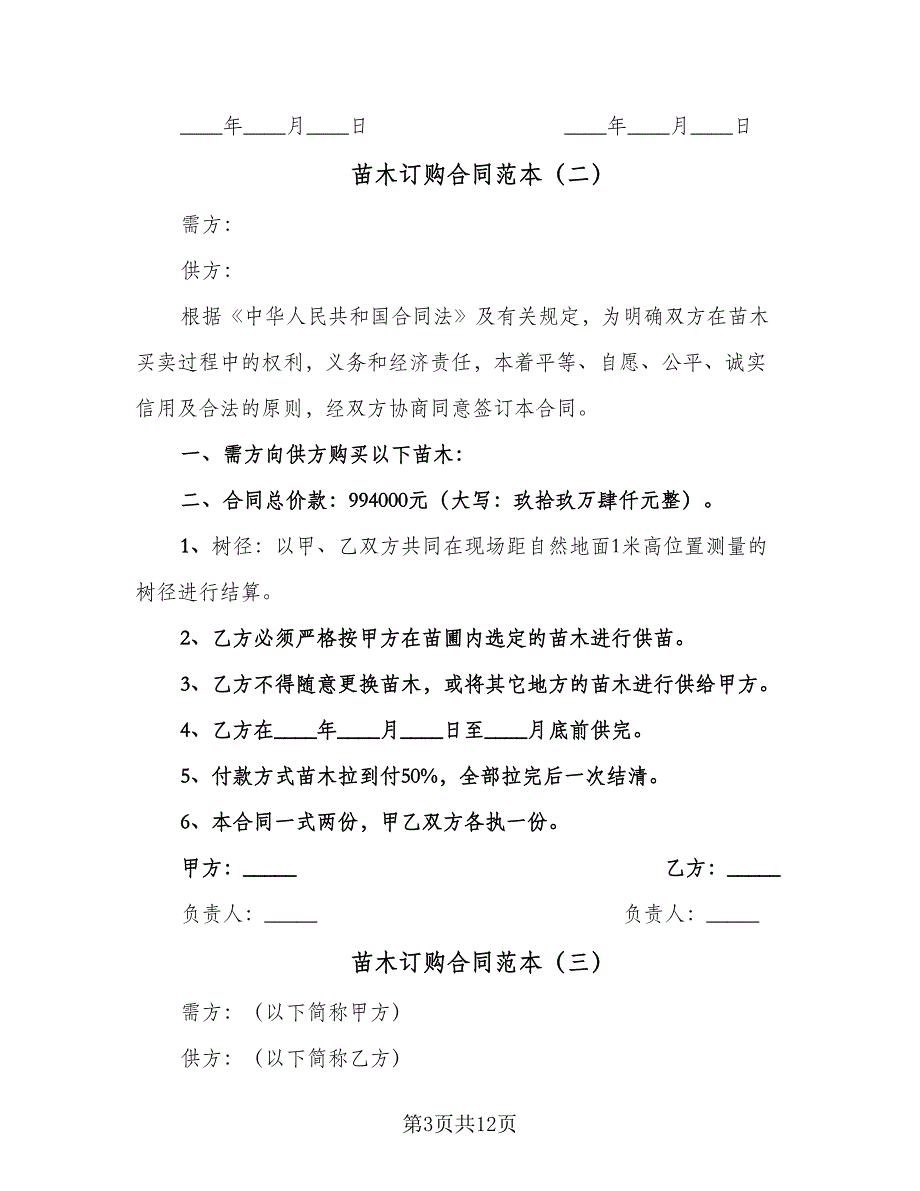 ____年____月____日 ____年____月____日
苗木订购合同范本（二）
需方：
供方：
根据《中华人民共和国合同法》及有关规定，为明确双方在苗木
买卖过程中的权利，义务和经济责任，本着平等、自愿、公平、诚实
信用及合法的原则，经双方协商同意签订本合同。
一、需方向供方购买以下苗木：
二、合同总价款：994000元（大写：玖拾玖万肆仟元整）。
1、树径：以甲、乙双方共同在现场距自然地面1米高位置测量的
树径进行结算。
2、乙方必须严格按甲方在苗圃内选定的苗木进行供苗。
3、乙方不得随意更换苗木，或将其它地方的苗木进行供给甲方。
4、乙方在____年____月____日至____月底前供完。
5、付款方式苗木拉到付50%，全部拉完后一次结清。
6、本合同一式两份，甲乙双方各执一份。
甲方：_____ 乙方：_____
负责人：_____ 负责人：_____
苗木订购合同范本（三）
需方：（以下简称甲方）
供方：（以下简称乙方）
第3页共12页